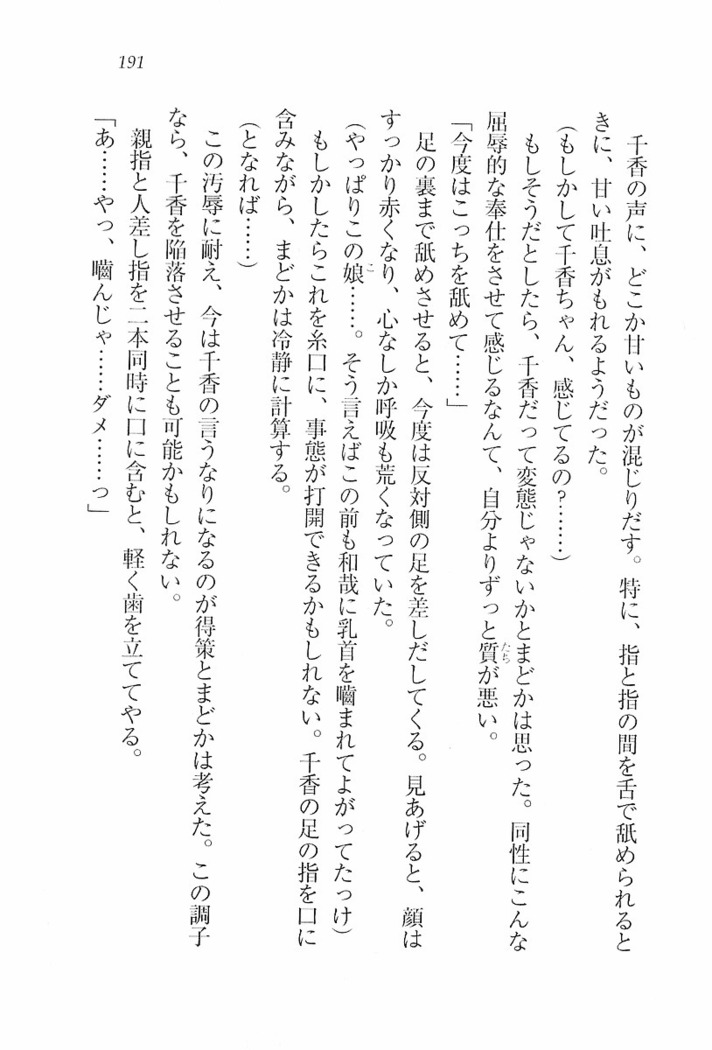 191
千香の声に、どこか甘いものが混じりだす。特に、指と指の間を舌で舐められると
きに、甘い吐息がもれるようだった。
（もしかして千香ちゃん、感じてるの？……）
もしそうだとしたら、千香だって変態じゃないかとまどかは思った。同性にこんな
屈辱的な奉仕をさせて感じるなんて、自分よりずっと質が悪い。
「今度はこっちを舐めて……」
足の裏まで舐めさせると、今度は反対側の足を差しだしてくる。見あげると、顔は
すっかり赤くなり、心なしか呼吸も荒くなっていた。
（やっぱりこの娘……。そう言えばこの前も和哉に乳首を嚙まれてよがってたっけ）
もしかしたらこれを糸口に、事態が打開できるかもしれない。千香の足の指を口に
含みながら、まどかは冷静に計算する。
（となれば……）
この汚辱に耐え、今は千香の言うなりになるのが得策とまどかは考えた。この調子
なら、千香を陥落させることも可能かもしれない。
親指と人差し指を二本同時に口に含むと、軽く歯を立ててやる。
「あ……やっ、嚙んじゃ……ダメ……っ」